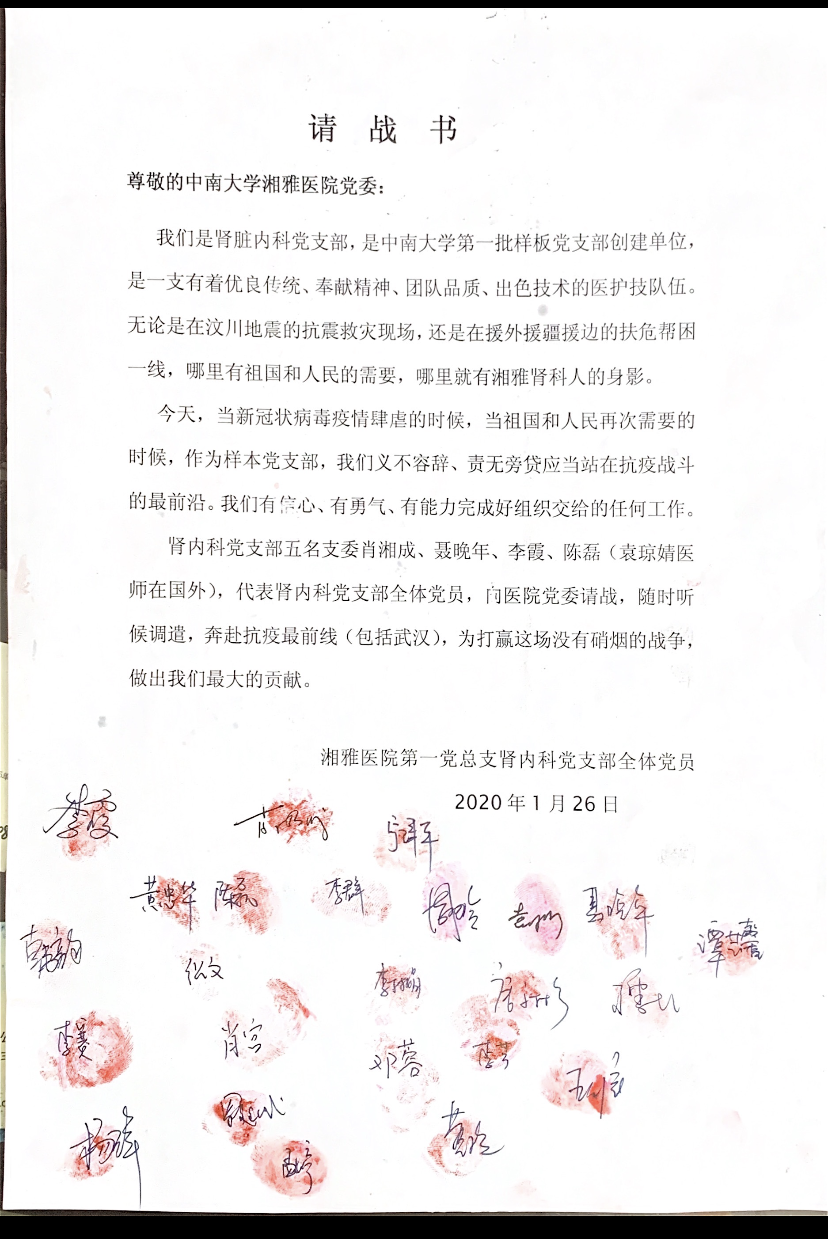 请战书
尊敬的中南大学湘雅医院党委：
我们是肾脏内科党支部，是中南大学第一批样板党支部创建单位，
是一支有着优良传统、奉献精神、团队品质、出色技术的医护技队伍。
无论是在汶川地震的抗震救灾现场，还是在援外援疆援边的扶危帮困
一线，哪里有祖国和人民的需要，哪里就有湘雅肾科人的身影。
今天，当新冠状病毒疫情肆虐的时候，当祖国和人民再次需要的
时候，作为样本党支部，我们义不容辞、责无旁贷应当站在抗疫战斗
的最前沿。我们有信心、有勇气、有能力完成好组织交给的任何工作。
肾内科党支部五名支委肖湘成、聂晚年、李霞、陈磊（袁琼婧医
师在国外），代表肾内科党支部全体党员，向医院党委请战，随时听
候调遣，奔赴抗疫最前线（包括武汉），为打赢这场没有硝烟的战争，
做出我们最大的贡献。
湘雅医院第一党总支肾内科党支部全体党员
2020年1月26日
李霞
黄忠华 陈磊 李群 聂晚年
肖宫 邓蓉